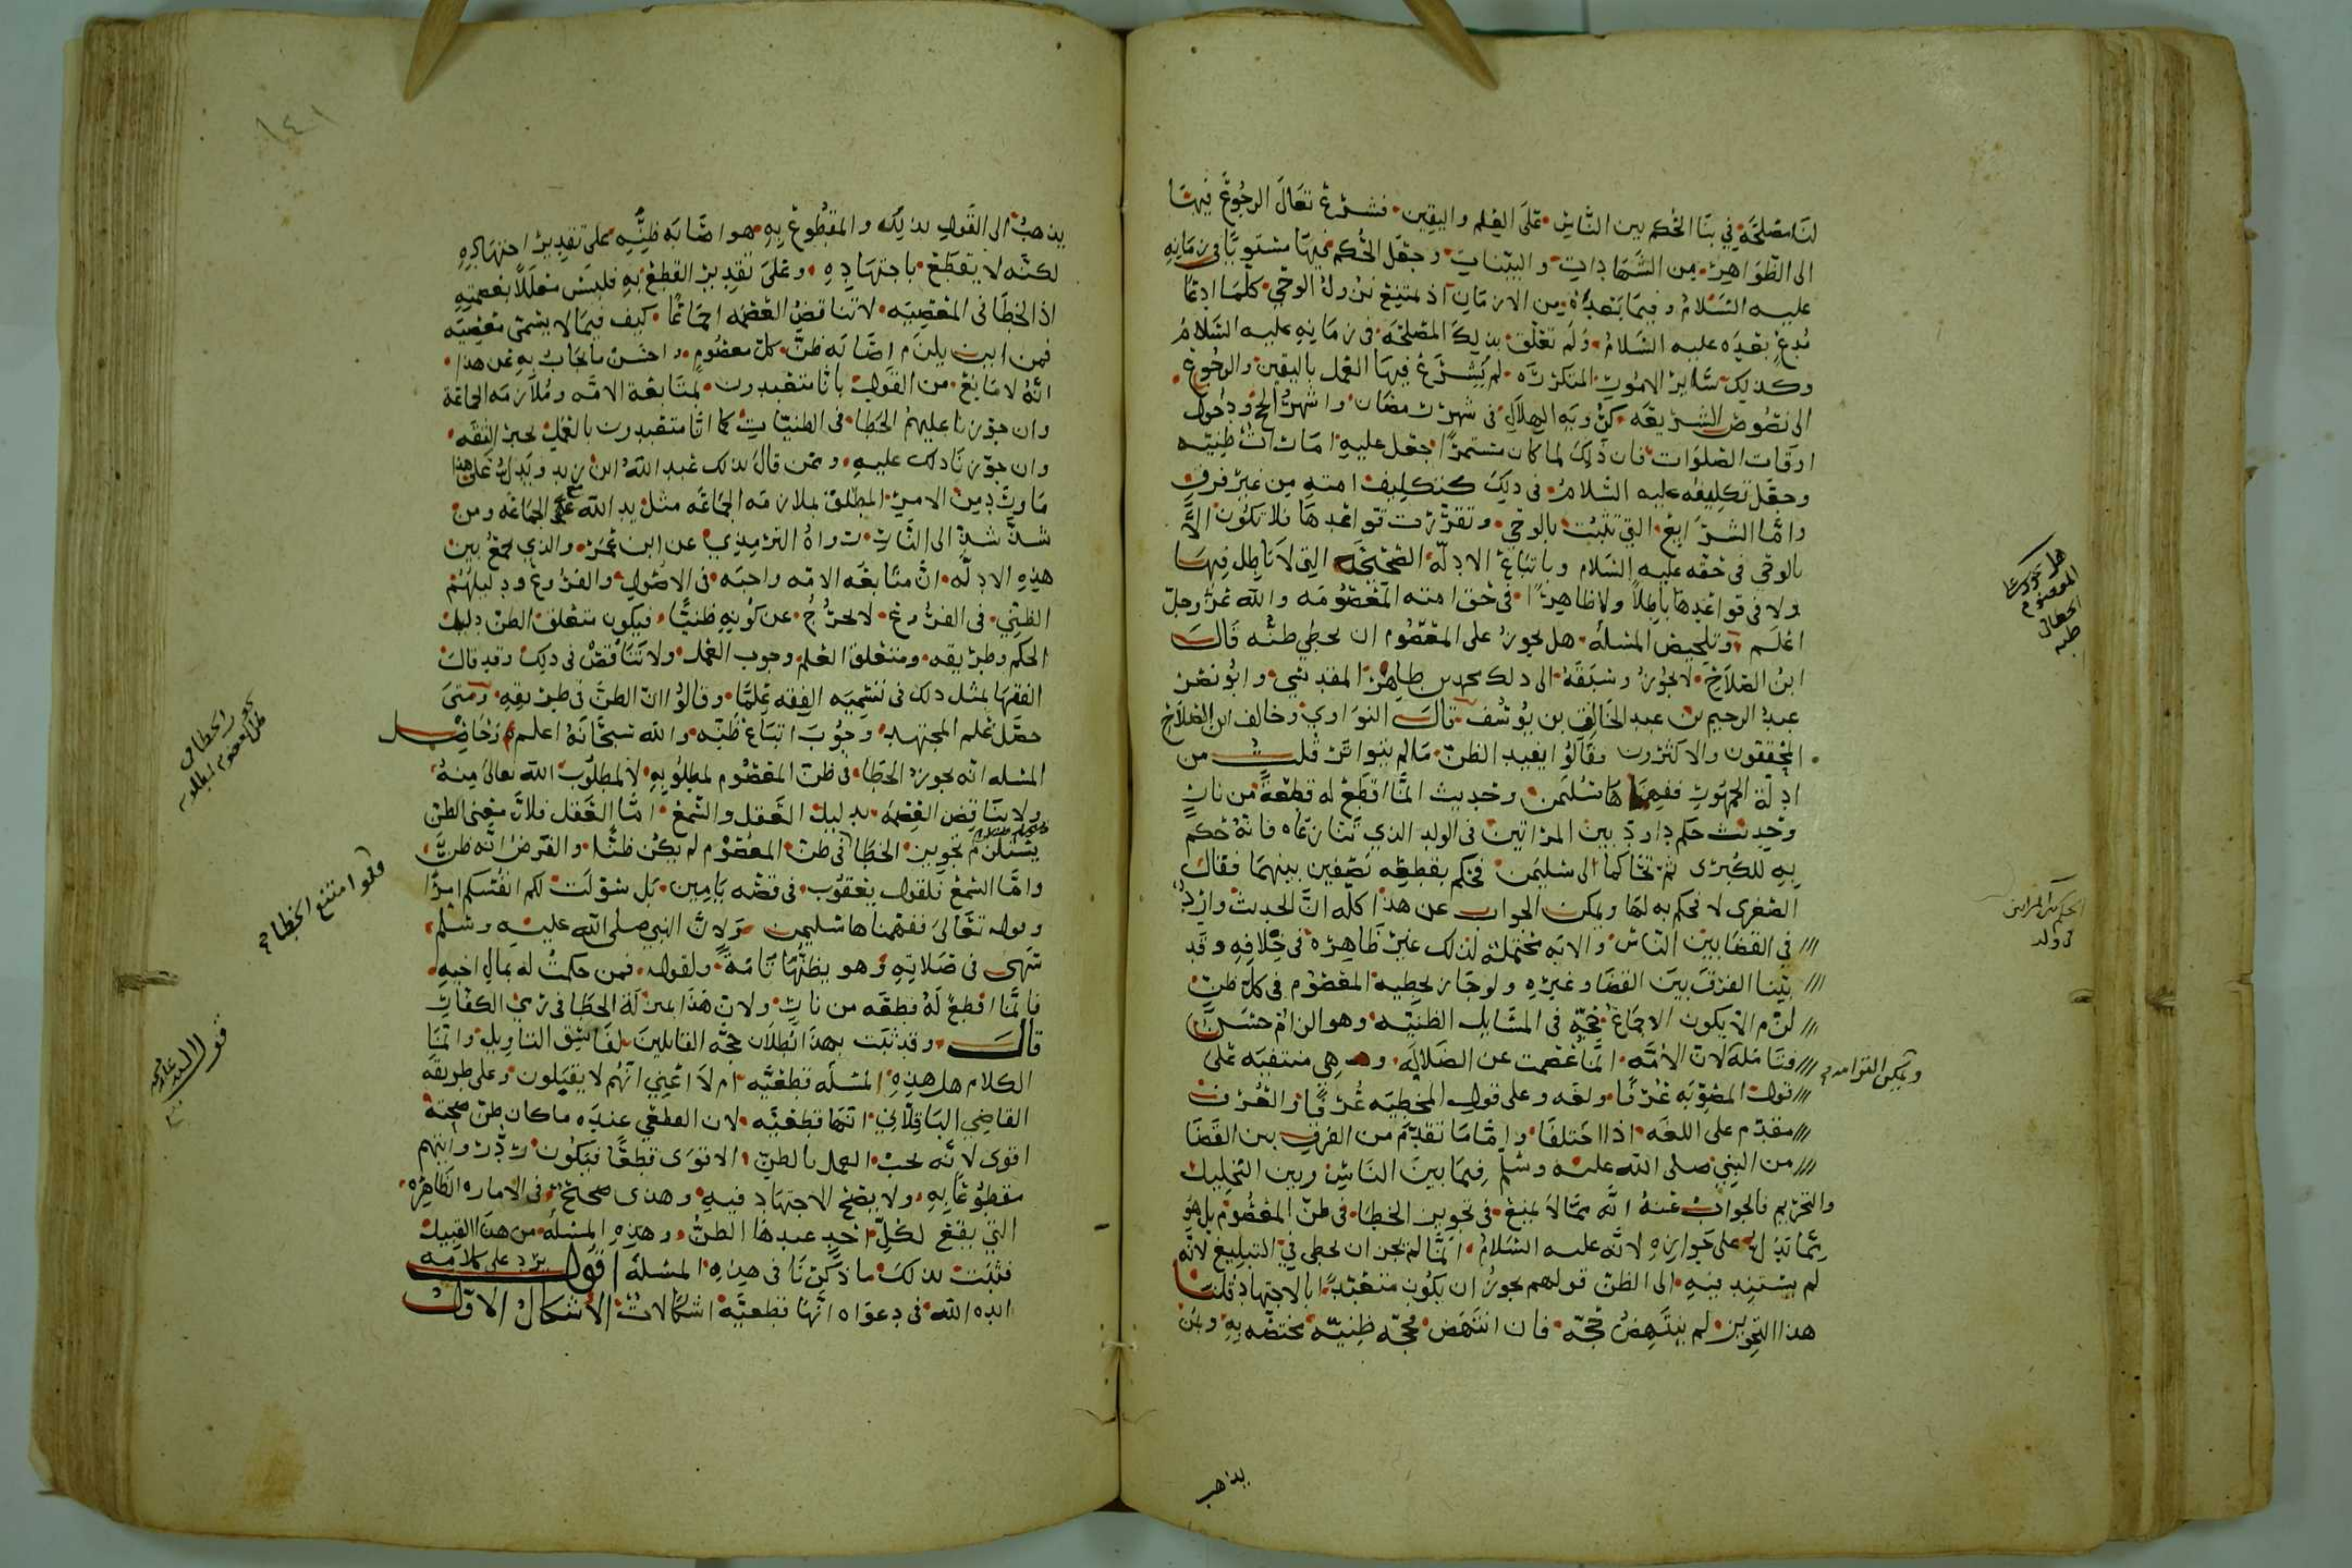 لنا مصلحة في بنا الحكم بين الناس على العلم واليقين فشرع تعالى الرجوع فيها
الى الظواهر من الشهادات والبينات وجعل الحكم فيها مستويا في زمانه
عليه السلام وفيما بعده من الازمان اذ لمتنع نزول الوحي كلما ادعا
مدع بعده عليه السلام ولم تعلق بذلك المصلحة في زمانه عليه السلام
وكذلك ساير الامور المتكررة لم يشرع فيها العمل باليقين والرجوع
الى نصوص الشريعة كرؤية الهلال في شهر رمضان واشهر الحج ودخول
اوقات الصلوات فان ذلك لما كان مستمرا جعل عليه امارات ظنيه
وجعل تكليفه عليه السلام في ذلك كتكليف امته من غير فرق
واما الشرايع التي تثبت بالوحي وتقررت قواعدها فلا تكون الا
بالوحي في حقه عليه السلام وباتباع الادلة الصحيحه التي لا باطل فيها
ولا في قواعدها باطلا ولا ظاهرا في حق امته المعصومه والله عز وجل
اعلم وتلخيص المسله هل يجوز على المعصوم ان يخطي ظنه قال
ابن الصلاح لا يجوز وسبقه الى ذلك محمد بن طاهر المقدسي وابو نصر
عبد الرحيم بن عبد الخالق بن يوسف قال النواوي وخالف ابن الصلاح
المحققون والاكثرون وقالوا يفيد الظن مالم يتواتر قلت من
ادلة الجمهور ففهمناها سليمن وحديث انما اقطع له قطعة من نار
وحديث حكم داود بين المراتين في الولد الذي تنازعاه فانه حكم
به للكبرى ثم تحاكما الى سليمن فحكم بقطعه نصفين بينهما فقالت
الصغرى لا فحكم به لها ويمكن الجواب عن هذا كله ان الحديث وارد
في القضا بين الناس والايه محتملة لذلك غير ظاهرة في خلافه وقد
بينا الفرق بين القضا وغيره ولو جاز تخطيه المعصوم في كل ظن
لزم ان يكون الاجماع حجة في المسايل الظنيه وهو الزام حسن
فتامله لان الامه انما عصمت عن الضلاله وهي منتفيه على
قول المصوبه عرفا ولغه وعلى قول المخطيه عرفا والعرف
مقدم على اللغه اذا اختلفا واما ما تقدم من الفرق بين القضا
من النبي صلى الله عليه وسلم فيما بين الناس وبين التحليل
والتحريم فالجواب عنه انه مما لا يمنع في تجويز الخطا في ظن المعصوم بل هو
مما يدل على جوازه لانه عليه السلام انما لم يجز ان يخطي في التبليغ لانه
لم يستند فيه الى الظن قولهم يجوز ان يكون متعبدا بالاجتهاد قلنا
هذا التجويز لم ينتهض حجة فان انتهض فحجه ظنيه مختصه به ومن
هل يجوز على المعصوم الخطا في ظنه
الحكم بين المراتين في ولد
يذهب
يذهب الى القول بذلك والمقطوع به هو اصابه ظنه على تقدير اجتهاده
لكنه لا يقطع باجتهاده وعلى تقدير القطع به فليس معللا بعصمته
اذ الخطا في المعصيه لا تناقض العصمه اجماعا كيف فيما لا يسمى معصيه
فمن اين يلزم اصابه ظن كل معصوم واحسن ما يجاب به عن هذا
انه لا مانع من القول بانا متعبدون لمتابعة الامه وملازمه الجماعة
وان جوزنا عليهم الخطا في الظنيات كما انا متعبدون بالعمل بخبر الثقه
وان جوزنا ذلك عليه وممن قال بذلك عبد الله ابن زيد ويدل على هذا
ما ورد من الامر المطلق بملازمه الجماعه مثل يد الله على الجماعه ومن
شذ شذ الى النار رواه الترمذي عن ابن عمر والذي يجمع بين
هذه الادله ان متابعه الامه واجبه في الاصول والفروع ودليلهم
الظني في الفروع لا يخرج عن كونه ظنيا فيكون متعلق الظن دليل
الحكم وطريقه ومتعلق العلم وجوب العمل ولا تناقض في ذلك وقد قال
الفقها بمثل ذلك في تسميه الفقه علما وقالوا ان الظن في طريقه ومتى
حصل علم المجتهد وجوب اتباع ظنه والله سبحانه اعلم وحاصل
المسله انه يجوز الخطا في ظن المعصوم لمطلوبه لا لمطلوب الله تعالى منه
ولا يناقض العصمه بدليل العقل والسمع اما العقل فلان معنى الظن
يستلزم تجويز الخطا في ظن المعصوم لم يكن ظنا والفرض انه ظن
واما السمع فلقول يعقوب في قصه يامين بل سولت لكم انفسكم امرا
وقوله تعالى ففهمناها سليمن ولان النبي صلى الله عليه وسلم
سهى في صلاته وهو يظنها تامة ولقوله فمن حكمت له بمال اخيه
فانما اقطع له قطعه من نار ولان هذا بمنزلة الخطا في رمي الكفار
قال وقد ثبت بهذا بطلان حجه القايلين لفاسق التاويل وانما
الكلام هل هذه المسله قطعيه ام لا اعني انهم لا يقبلون وعلى طريقة
القاضي الباقلاني انها قطعيه لان القطعي عنده ما كان ظن صحته
اقوى لانه يجب العمل بالظن الاقوى قطعا فيكون رد روايتهم
مقطوعا به ولا يصح الاجتهاد فيه وهذى صحيح في الاماره الظاهره
التي يقع لكل احد عندها الظن وهذه المسله من هذا القبيل
فثبت بذلك ما ذكرنا في هذه المسلة اقول يرد على كلامه
ايده الله في دعواه انها قطعيه اشكالات الاشكال الاول
فلو امتنع الخطا